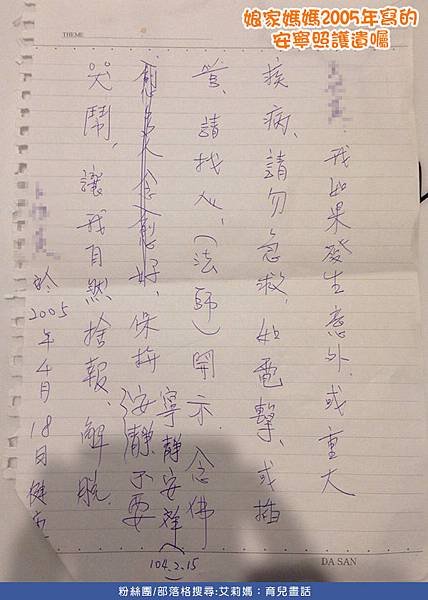 娘家媽媽2005年寫的
安寧照護遺囑
THEME
我如果發生意外、或重大
疾病、請勿急救、如電擊、或插
管、請找人、(法師)開示、念佛
愈多人念愈好、保持(安靜)不要
寧靜安祥
104.2.15
哭鬧、讓我自然捨報、解脫.
於2005年4月18日
DA SAN
粉絲團/部落格搜尋:艾莉媽：育兒畫話